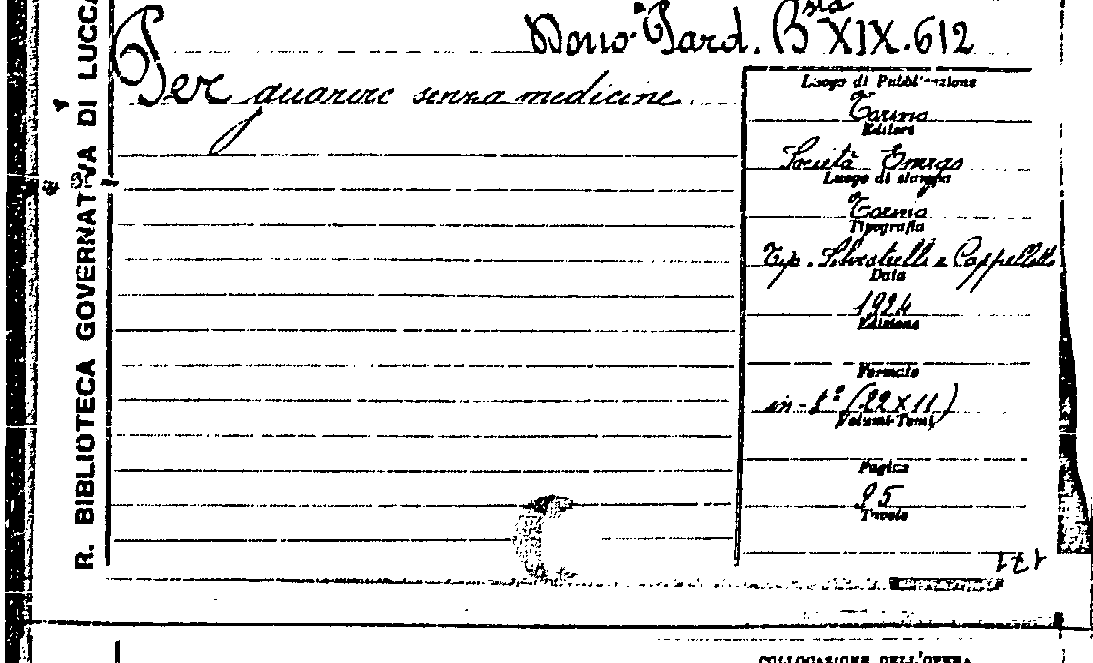 R. BIBLIOTECA GOVERNATIVA DI LUCCA
Dono Pard. Bsta XIX.612
Per guarire senza medicine
Luogo di Pubblicazione
Torino
Editore
Società Energo
Luogo di stampa
Torino
Tipografia
Tip. Silvestrelli e Cappelletto
Data
1924
Edizione
Formato
in-8º (22 x 11)
Volumi-Tomi
Pagine
95
Tavole
171
COLLOCAZIONE DELL'OPERA